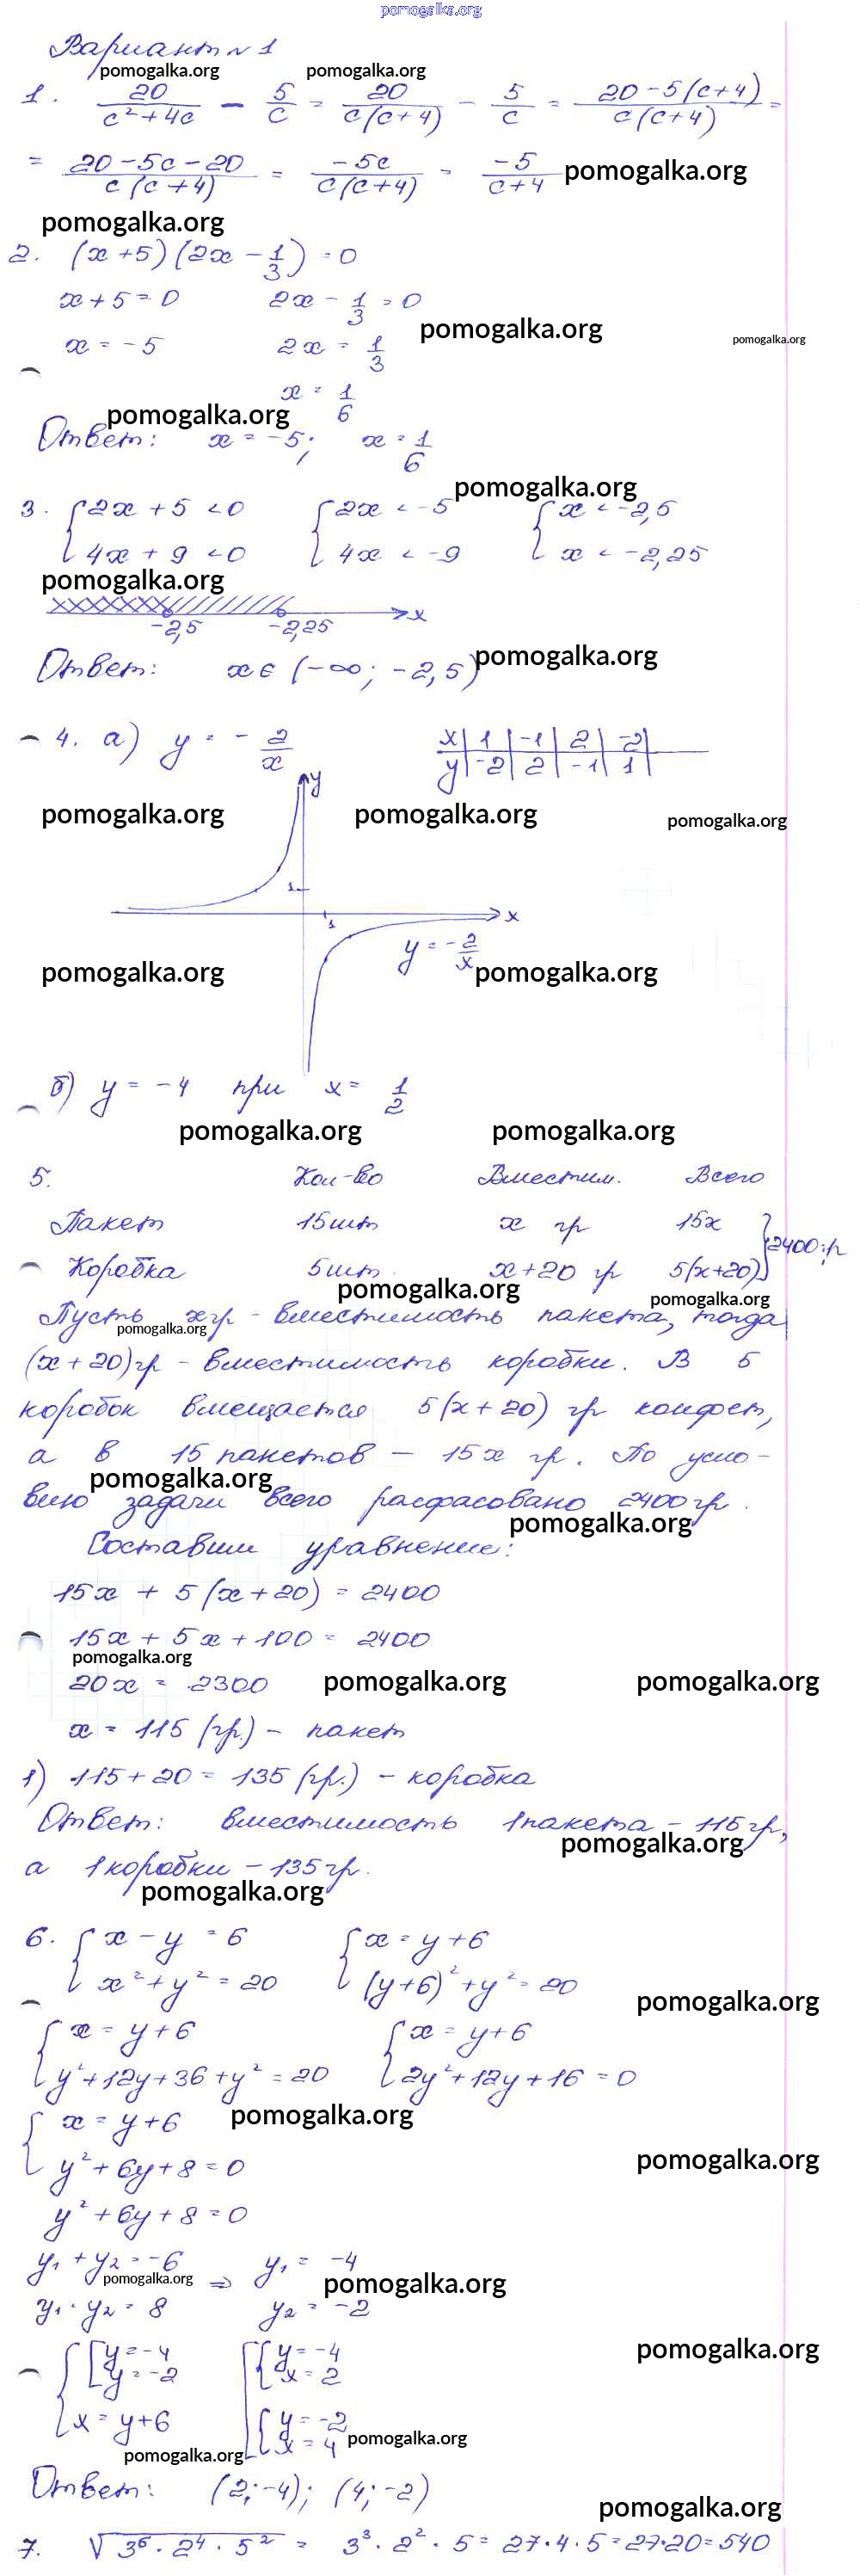 pomogalka.org
Вариант № 1
pomogalka.org pomogalka.org
1. 20/(c²+4c) − 5/c = 20/(c(c+4)) − 5/c = (20−5(c+4))/(c(c+4)) =
= (20−5c−20)/(c(c+4)) = −5c/(c(c+4)) = −5/(c+4) pomogalka.org
pomogalka.org
2. (x+5)(2x − 1/3) = 0
x+5=0 2x − 1/3 = 0
pomogalka.org pomogalka.org
x = −5 2x = 1/3
x = 1/6
pomogalka.org
Ответ: x = −5; x = 1/6
pomogalka.org
3. {2x + 5 < 0 {2x < −5 {x < −2,5
{4x + 9 < 0 {4x < −9 {x < −2,25
pomogalka.org
−2,5 −2,25 x
Ответ: x ∈ (−∞; −2,5) pomogalka.org
4. а) y = − 2/x
x | 1 | −1 | 2 | −2 |
y | −2 | 2 | −1 | 1 |
y
pomogalka.org pomogalka.org pomogalka.org
1
1 x
y = −2/x
pomogalka.org pomogalka.org
б) y = −4 при x = 1/2
pomogalka.org pomogalka.org
5. Кол-во Вместим. Всего
Пакет 15шт x гр 15x
Коробка 5шт. x+20 гр 5(x+20) } 2400 гр
pomogalka.org pomogalka.org
Пусть x гр – вместимость пакета, тогда
pomogalka.org
(x+20)гр – вместимость коробки. В 5
коробок вмещается 5(x+20) гр конфет,
а в 15 пакетов – 15x гр. По усло-
pomogalka.org
вию задачи всего расфасовано 2400 гр.
pomogalka.org
Составим уравнение:
15x + 5(x+20) = 2400
15x + 5x + 100 = 2400
pomogalka.org
20x = 2300 pomogalka.org pomogalka.org
x = 115 (гр.) – пакет
1) 115+20 = 135 (гр.) – коробка
Ответ: вместимость 1 пакета – 115 гр,
pomogalka.org
а 1 коробки – 135 гр.
pomogalka.org
6. {x − y = 6 {x = y+6
{x² + y² = 20 {(y+6)² + y² = 20
pomogalka.org
{x = y+6 {x = y+6
{y²+12y+36+y² = 20 {2y²+12y+16 = 0
{x = y+6 pomogalka.org
{y²+6y+8=0 pomogalka.org
y²+6y+8=0
y₁ + y₂ = −6 ⇒ y₁ = −4
pomogalka.org pomogalka.org
y₁ · y₂ = 8 y₂ = −2
pomogalka.org
{[y=−4 [{y=−4
y=−2 x=2
x=y+6 {y=−2
x=4 pomogalka.org
pomogalka.org
Ответ: (2;−4); (4;−2)
pomogalka.org
7. √(3⁶·2⁴·5²) = 3³·2²·5 = 27·4·5 = 27·20 = 540